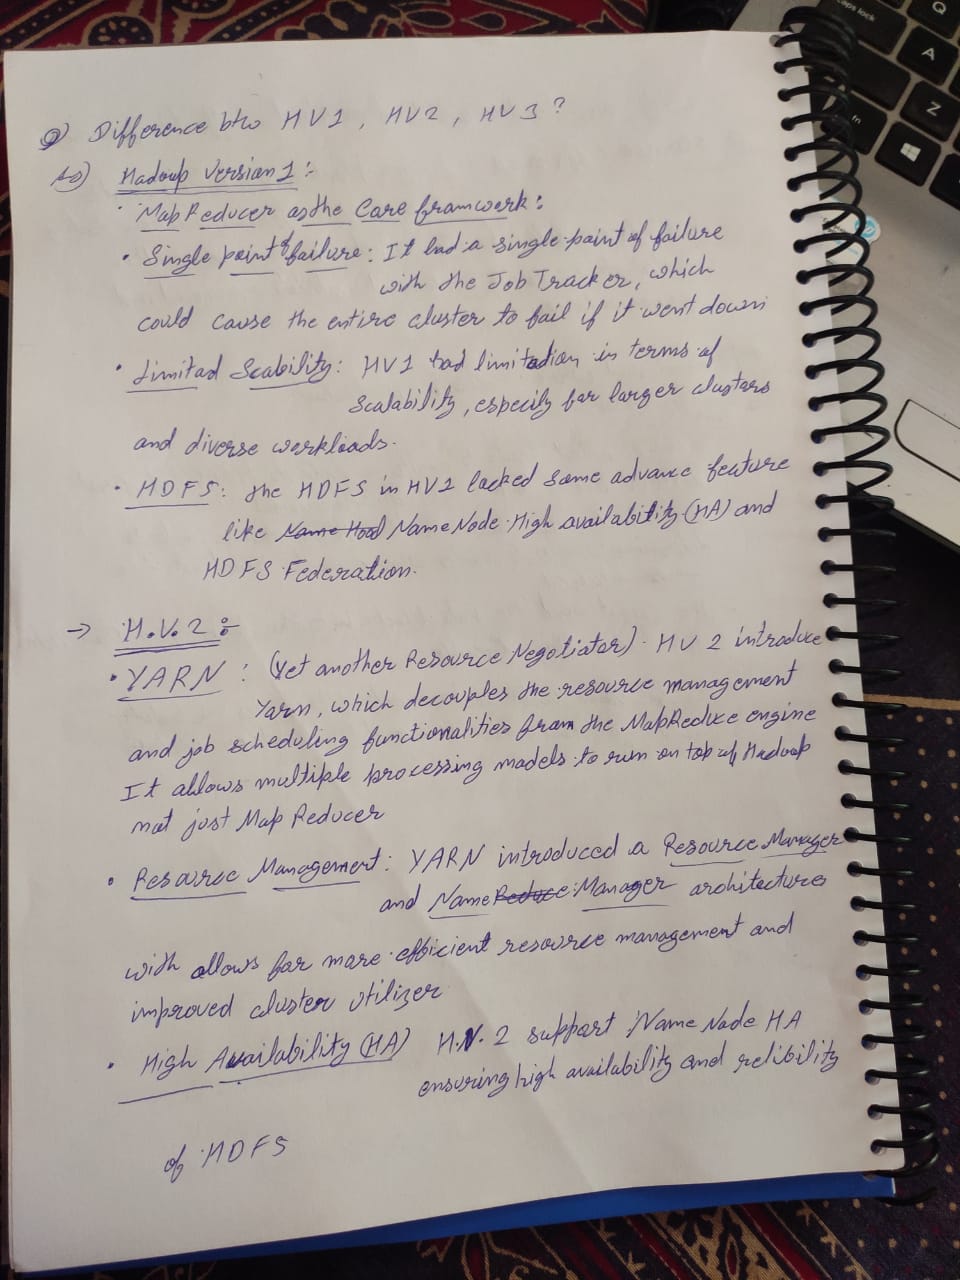 Q) Difference btw HV1, HV2, HV3?
As) Hadoup Version 1:
• Map Reducer as the Core framwork:
• Single point of failure: It had a single point of failure
with the Job Tracker, which
could cause the entire cluster to fail if it went down
• Limitad Scability: HV1 had limitation in terms of
Scalability, especily for larger clustars
and diverse workloads.
• HDFS: the HDFS in HV1 lacked some advance feature
like Name Node High availability (HA) and
HDFS Federation.
→ H.V.2:
• YARN : (Yet another Resource Negotiator). HV 2 introduce
Yarn, which decouples the resource management
and job scheduling functionalities from the MapReduce engine
It allows multiple processing models to run on top of Hadoop
not just Map Reducer
• Resource Management: YARN introduced a Resource Manager
and Name Manager architectures
with allows for more efficient resource management and
improved cluster utilizer
• High Availability (HA) H.V. 2 support Name Node HA
ensuring high availability and relibility
of HDFS
caps lock
Q
A
Z
fn
hp